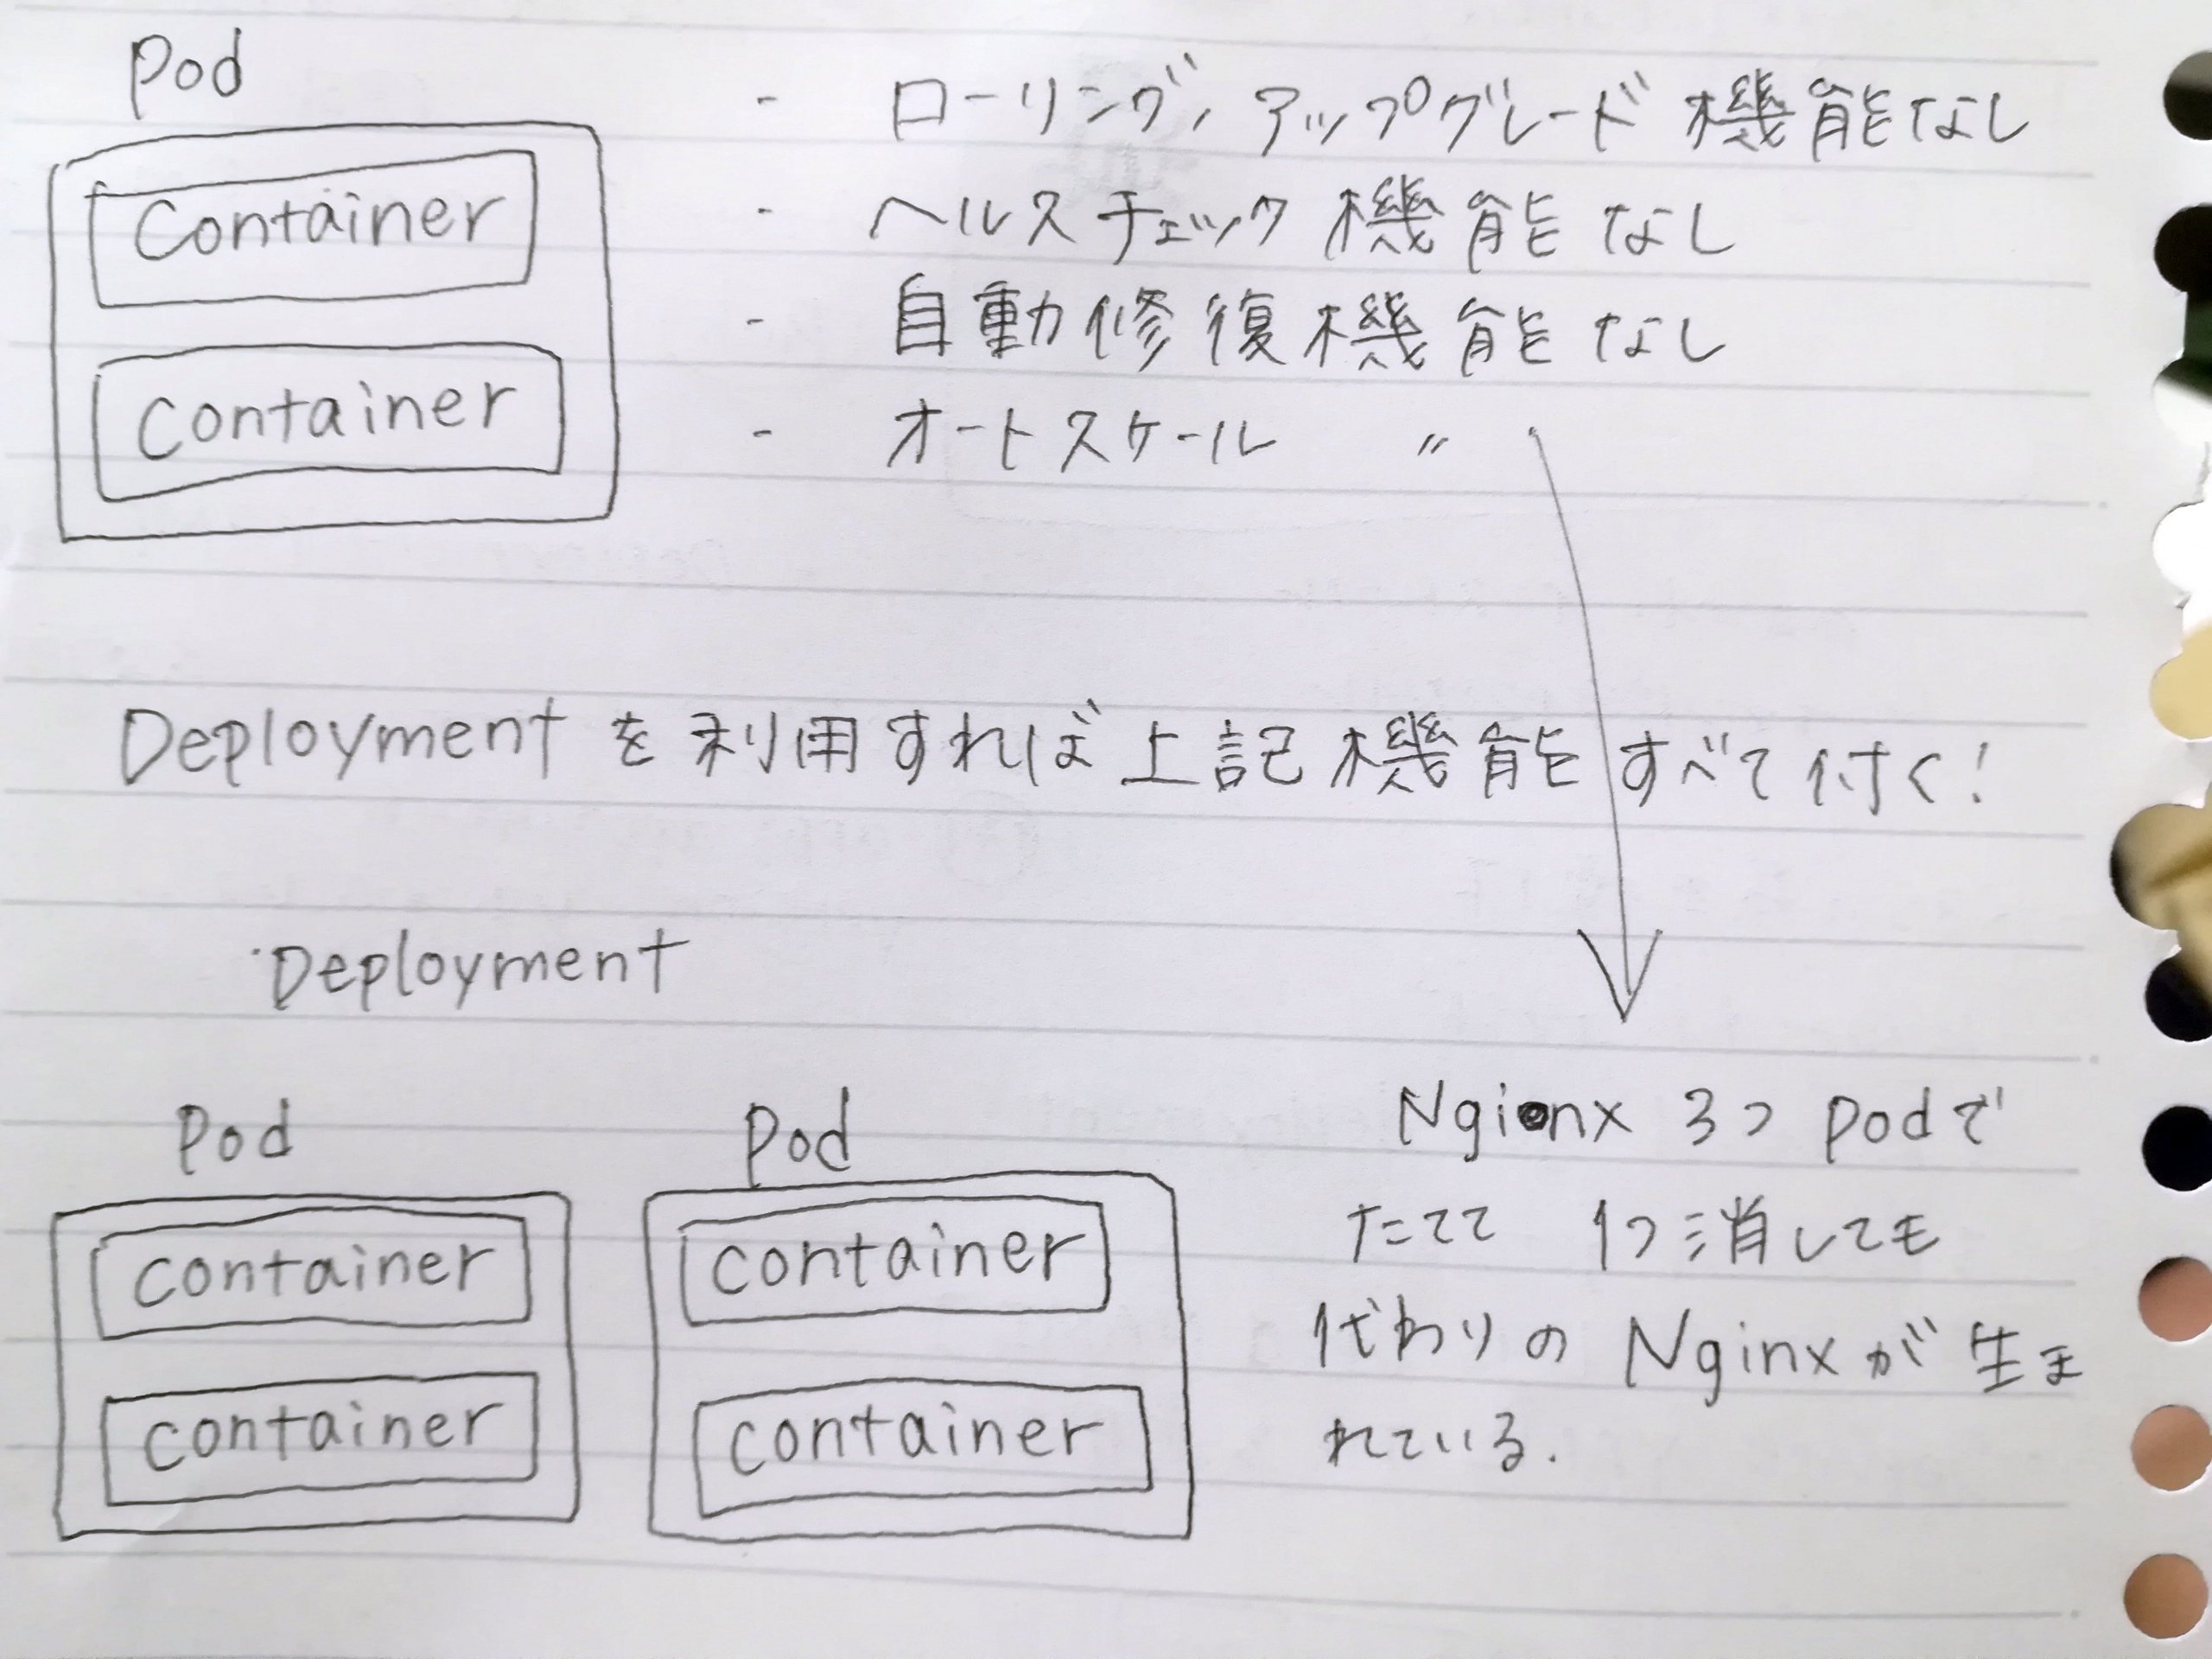 Pod
Container
Container
- ローリング、アップグレード機能なし
- ヘルスチェック機能なし
- 自動修復機能なし
- オートスケール 〃
Deploymentを利用すれば上記機能すべて付く!
Deployment
Pod
container
container
Pod
container
container
Nginx 3つ Podで
たてて 1つ消しても
代わりの Nginxが生ま
れている.